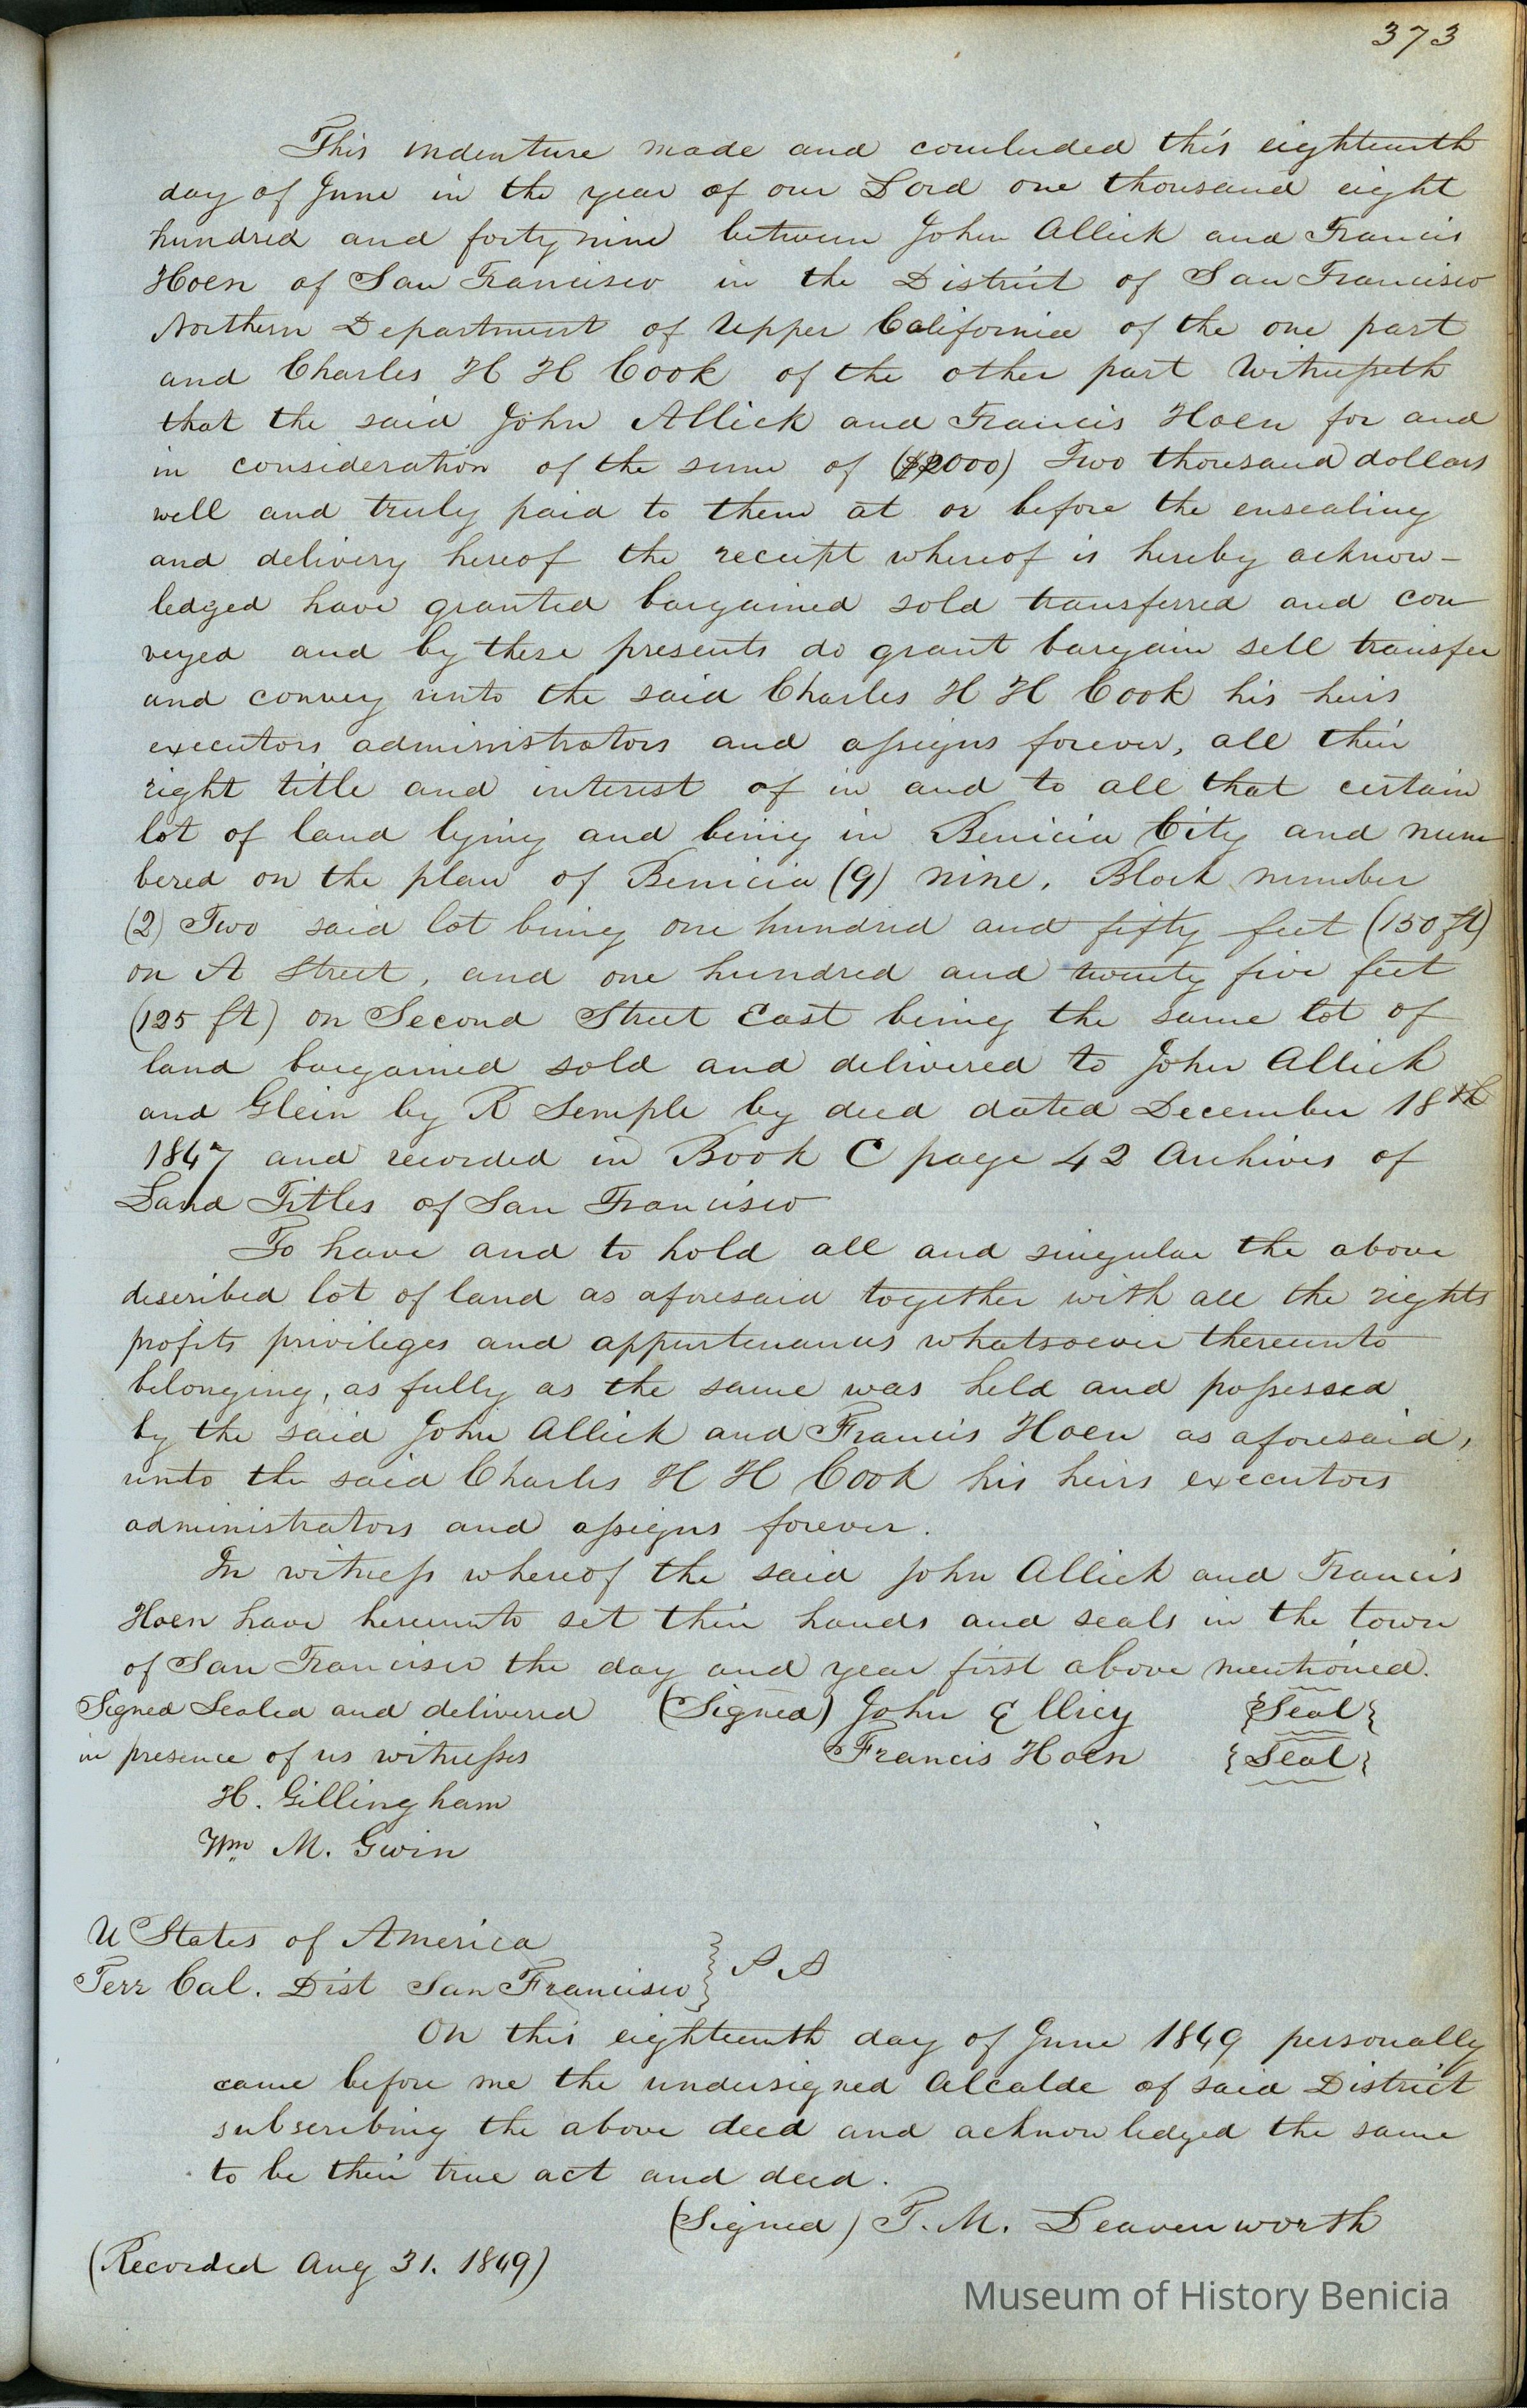 373
This indenture made and concluded this eighteenth
day of June in the year of our Lord one thousand eight
hundred and forty nine between John Allick and Francis
Hoen of San Francisco in the District of San Francisco
Northern Department of Upper California of the one part
and Charles H H Cook of the other part Witnesseth
that the said John Allick and Francis Hoen for and
in consideration of the sum of ($2000) Two thousand dollars
well and truly paid to them at or before the ensealing
and delivery hereof the receipt whereof is hereby acknow-
ledged have granted bargained sold transferred and con
veyed and by these presents do grant bargain sell transfer
and convey unto the said Charles H H Cook his heirs
executors administrators and assigns forever, all their
right title and interest of in and to all that certain
lot of land lying and being in Benicia City and num
bered on the plan of Benicia (9) nine, Block number
(2) Two said lot being one hundred and fifty feet (150 ft)
on A Street, and one hundred and twenty five feet
(125 ft) on Second Street East being the same lot of
land bargained sold and delivered to John Allick
and Glein by R Semple by deed dated December 18th
1847 and recorded in Book C page 42 Archives of
Land Titles of San Francisco
To have and to hold all and singular the above
described lot of land as aforesaid together with all the rights
profits privileges and appurtenances whatsoever thereunto
belonging, as fully as the same was held and possessed
by the said John Allick and Francis Hoen as aforesaid,
unto the said Charles H H Cook his heirs executors
administrators and assigns forever.
In witness whereof the said John Allick and Francis
Hoen have hereunto set their hands and seals in the town
of San Francisco the day and year first above mentioned.
Signed Sealed and delivered (Signed) John Ellicy {Seal}
in presence of us witnesses Francis Hoen {Seal}
H. Gillingham
Wm M. Gwin
U States of America
Terr Cal. Dist San Francisco } S S
On this eighteenth day of June 1849 personally
came before me the undersigned Alcalde of said District
subscribing the above deed and acknowledged the same
to be their true act and deed.
(Signed) T. M. Leavenworth
(Recorded Aug 31. 1849)
Museum of History Benicia